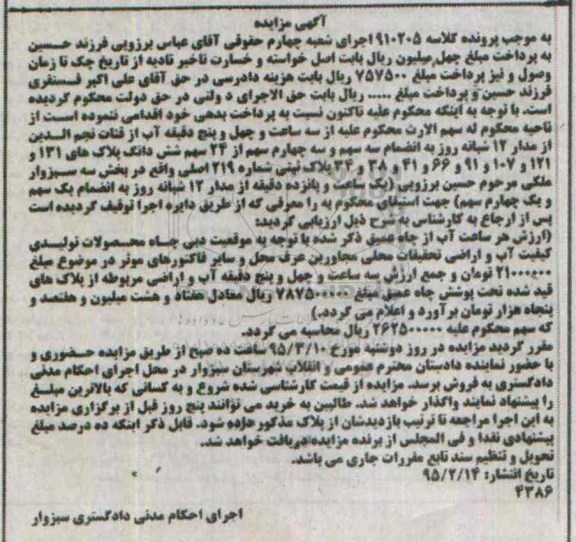 آگهی مزایده
به موجب پرونده کلاسه ۹۱۰۲۰۵ اجرای شعبه چهارم حقوقی آقای عباس برزویی فرزند حسین
به پرداخت مبلغ چهل میلیون ریال بابت اصل خواسته و خسارت تاخیر تادیه از تاریخ چک تا زمان
وصول و نیز پرداخت مبلغ ۷۵۷۵۰۰ ریال بابت هزینه دادرسی در حق آقای علی اکبر فسنقری
فرزند حسین و پرداخت مبلغ ..... ریال بابت حق الاجرای د ولتی در حق دولت محکوم گردیده
است. با توجه به اینکه محکوم علیه تاکنون نسبت به پرداخت بدهی خود اقدامی ننموده است از
ناحیه محکوم له سهم الارث محکوم علیه از سه ساعت و چهل و پنج دقیقه آب از قنات نجم الدین
از مدار ۱۲ شبانه روز به انضمام سه سهم و سه چهارم سهم از ۲۴ سهم شش دانگ پلاک های ۱۳۱ و
۱۲۱ و ۱۰۷ و ۹۱ و ۶۶ و ۴۱ و ۳۸ و ۳۴ پلاک ثبتی شماره ۲۱۹ اصلی واقع در بخش سه سبزوار
ملکی مرحوم حسین برزویی (یک ساعت و پانزده دقیقه از مدار ۱۲ شبانه روز به انضمام یک سهم
و یک چهارم سهم) جهت استیفای محکوم به را معرفی که از طریق دایره اجرا توقیف گردیده است
پس از ارجاع به کارشناس به شرح ذیل ارزیابی گردید:
(ارزش هر ساعت آب از چاه عمیق ذکر شده با توجه به موقعیت دبی چاه محصولات تولیدی
کیفیت آب و اراضی تحقیقات محلی مجاورین عرف محل و سایر فاکتورهای موثر در موضوع مبلغ
۲۱۰۰۰۰۰۰ تومان و جمع ارزش سه ساعت و چهل و پنج دقیقه آب و اراضی مربوطه از پلاک های
قید شده تحت پوشش چاه عمیق مبلغ ۷۸۷۵۰۰۰۰۰ ریال معادل هفتاد و هشت میلیون و هفتصد و
پنجاه هزار تومان برآورد و اعلام می گردد.)
که سهم محکوم علیه ۲۶۲۵۰۰۰۰۰ ریال محاسبه می گردد.
مقرر گردید مزایده در روز دوشنبه مورخ ۹۵/۳/۱۰ ساعت ده صبح از طریق مزایده حضوری و
با حضور نماینده دادستان محترم عمومی و انقلاب شهرستان سبزوار در محل اجرای احکام مدنی
دادگستری به فروش برسد. مزایده از قیمت کارشناسی شده شروع و به کسانی که بالاترین مبلغ
را پیشنهاد نمایند واگذار خواهد شد. طالبین به خرید می توانند پنج روز قبل از برگزاری مزایده
به این اجرا مراجعه تا ترتیب بازدیدشان از پلاک مذکور داده شود. قابل ذکر اینکه ده درصد مبلغ
پیشنهادی نقدا و فی المجلس از برنده مزایده دریافت خواهد شد.
تحویل و تنظیم سند تابع مقررات جاری می باشد.
تاریخ انتشار: ۹۵/۲/۱۴
۴۳۸۶
اجرای احکام مدنی دادگستری سبزوار